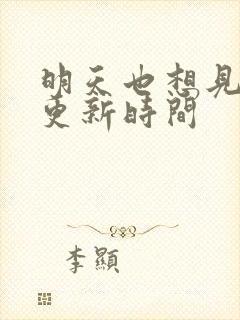 明天也想見
更新時間
李顯